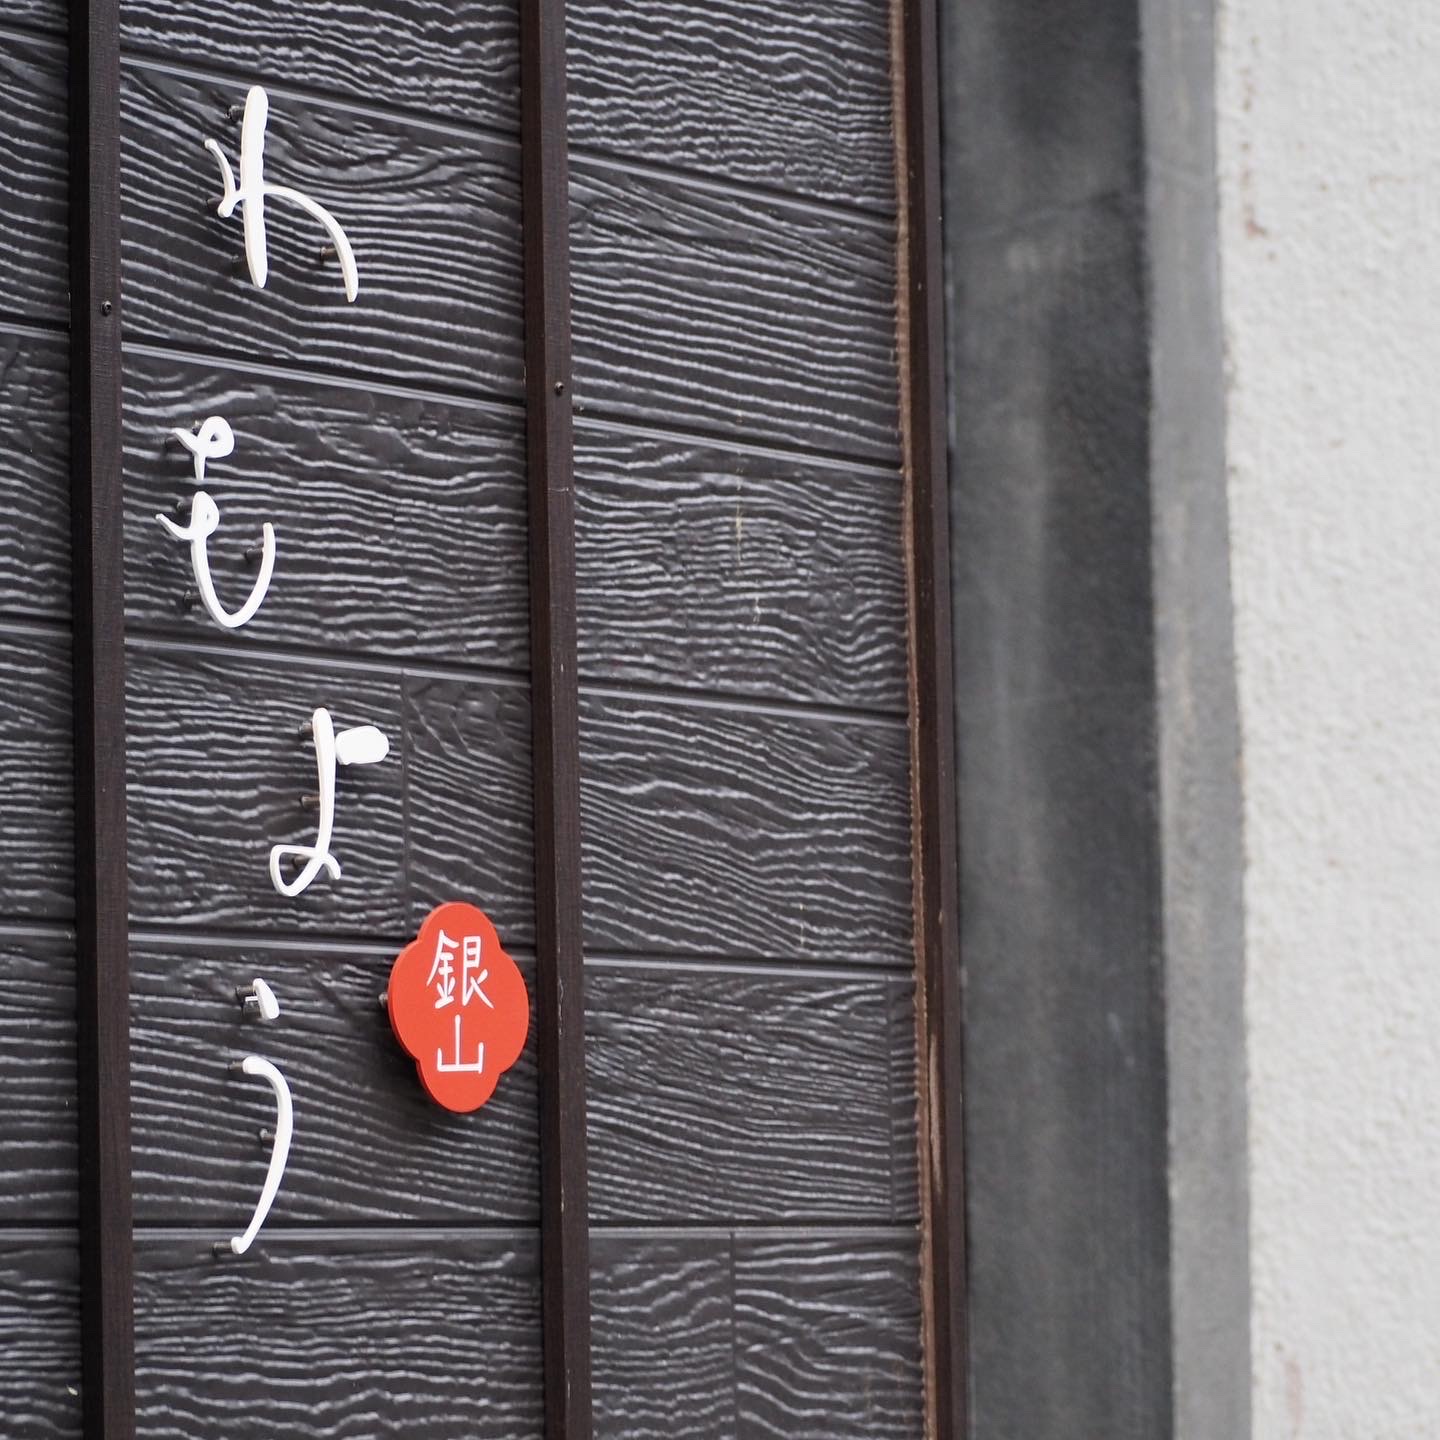 わもよう
銀山